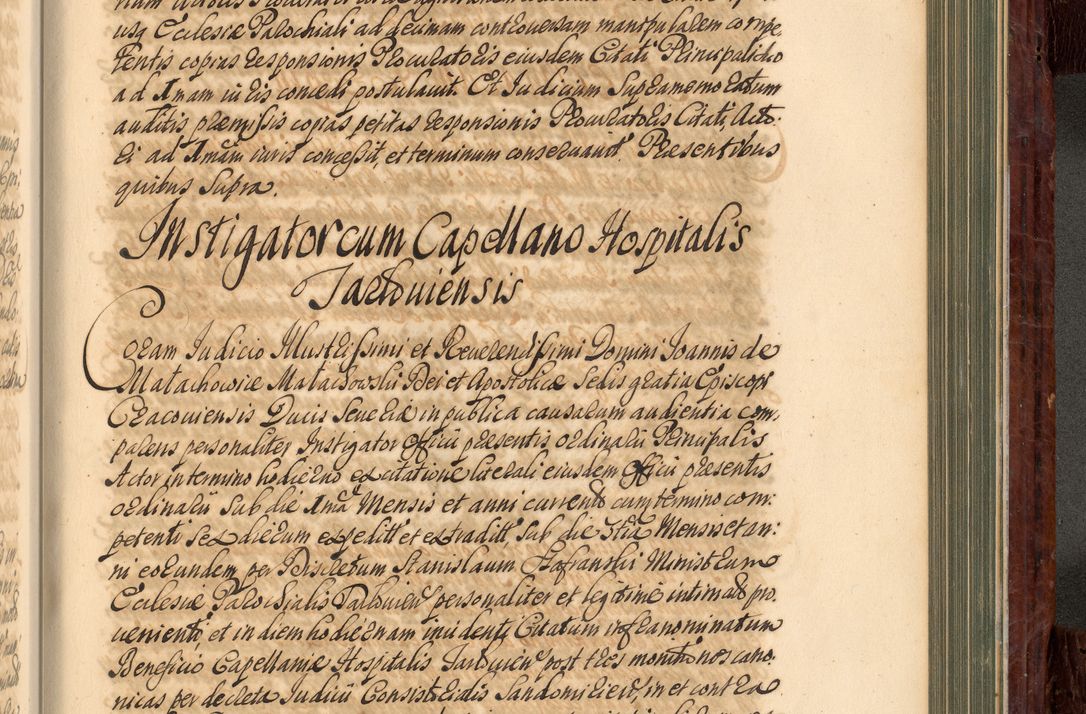 usq Ecclesiæ Parochiali ad decimam controversam manipularem compe
tentis copias responsionis Procuratoris eiusdem Citati Principalis
ad Imam iuris concedi postulavit. Et Judicium Supramemoratum
auditis præmissis copias petitas responsionis Procuratoris Citati, Acto:
ri ad Imam iuris concessit, et terminum conservavit. Præsentibus
quibus supra.
Instigator cum Capellano Hospitalis
Tarloviensis
Coram Judicio Illustrissimi et Reverendissimi Domini Joannis de
Małachowice Małachowski Dei et Apostolicæ Sedis gratia Episcopi
Cracoviensis Ducis Severiæ in publica causarum audientia com,
parens personaliter Instigator Officii præsentis ordinarii Principalis
Actor in termino hodierno ex citatione literali eiusdem Officii præsentis
ordinarii sub die Ima Mensis et anni current cum termino com:
petenti sex dierum expedit et extradit, sub die 5ta Mensis et an:
ni eorundem per Discretum Stanislaum Szafranski Ministrum
Ecclesiæ Parochialis Tarlovien personaliter et legitime intimat pro:
venienti, et in diem hodiernam incidenti Citatum infranominatum
Beneficio Capellaniæ Hospitalis Tarlovien post tres monitiones cano:
nicas per decreta Judicii Consistorialis Sandomirien, in et contra